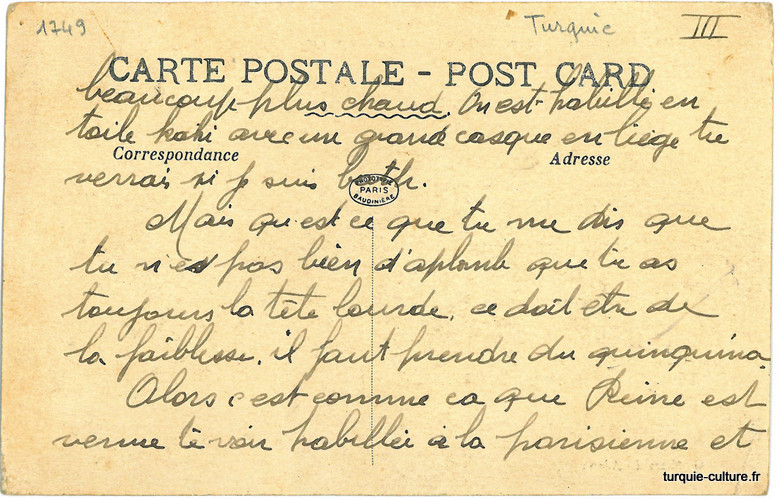 1749 Turquie III
CARTE POSTALE - POST CARD
beaucoup plus chaud. On est habillé en
toile kaki avec un grand casque en liège tu
Correspondance Adresse
verrais si je suis
PARIS
BAUDINIÈRE
Mais qu'est ce que tu me dis que
tu n'es pas bien d'aplomb que tu as
toujours la tête lourde, ce doit etre de
la faiblesse, il faut prendre du quinquina
Alors c'est comme ca que Reine est
venue te voir habillée à la parisienne et
turquie-culture.fr